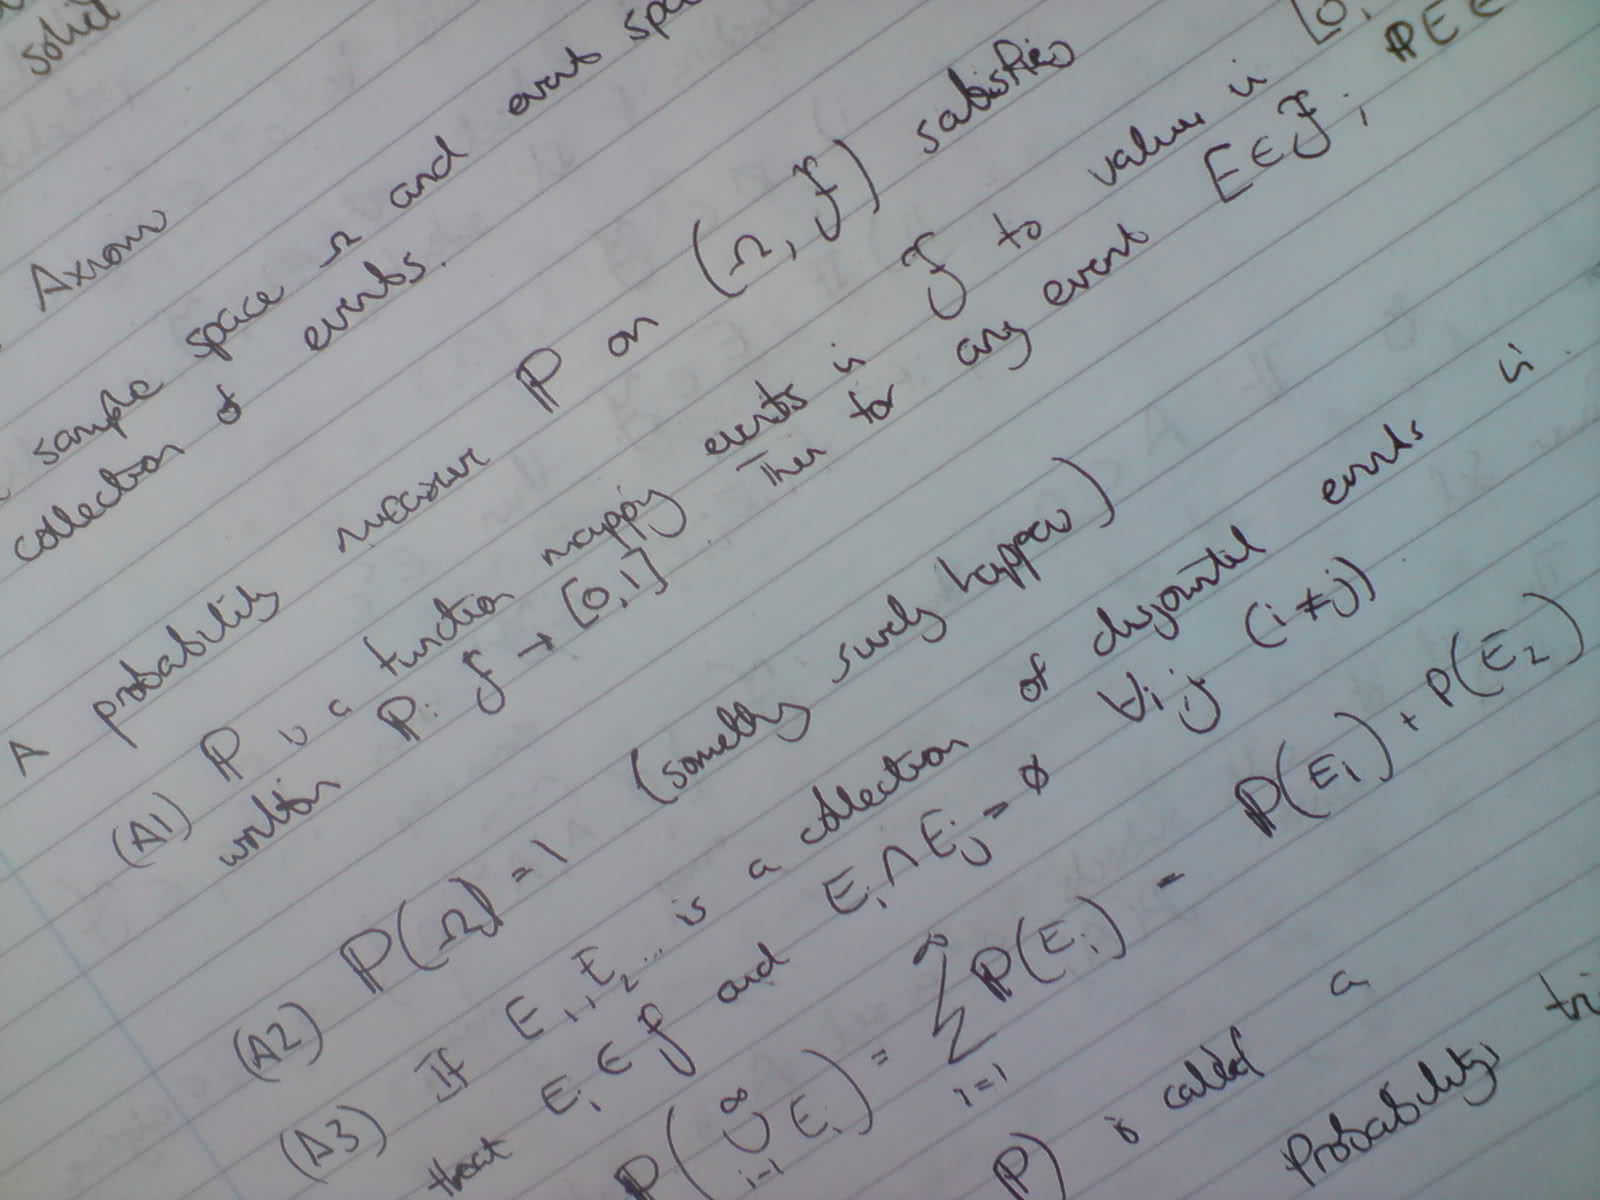 solid
Axioms
sample space Ω and event spa
collection of events.
A probability measure ℙ on (Ω, ℱ) satisfies
(A1) ℙ is a function mapping events in ℱ to values in [0,
written ℙ: ℱ → [0,1] Then for any event E ∈ ℱ, ℙE ∈
(A2) ℙ(Ω) = 1 (something surely happens)
(A3) If E₁, E₂... is a collection of disjointed events in
that Eᵢ ∈ ℱ and Eᵢ ∩ Eⱼ = ∅ ∀i,j (i≠j)
ℙ(⋃_{i=1}^{∞} Eᵢ) = ∑_{i=1}^{∞} ℙ(Eᵢ) = ℙ(E₁) + P(E₂)
ℙ) is called a
Probability tri